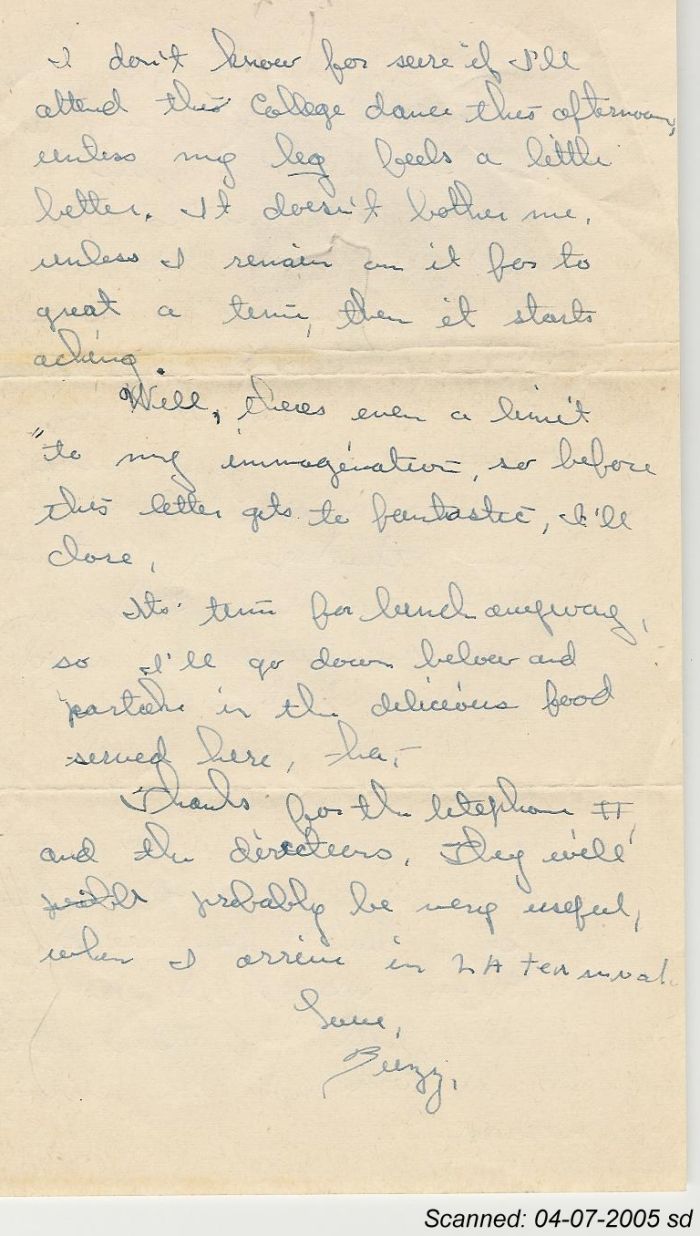 I don't know for sure if I'll
attend the College dance this afternoon,
unless my leg feels a little
better. It doesn't bother me,
unless I remain on it for to
great a time, then it starts
aching.
Well, theres even a limit
to my immagination, so before
this letter gets to fantastic, I'll
close,
Its time for lunch anyway,
so I'll go down below and
partake in the delicious food
served here, ha,-
Thanks for the telephone #
and the directions. They will
probably be very useful,
when I arrive in LA terminal.
Love,
Buzzy.
Scanned: 04-07-2005 sd